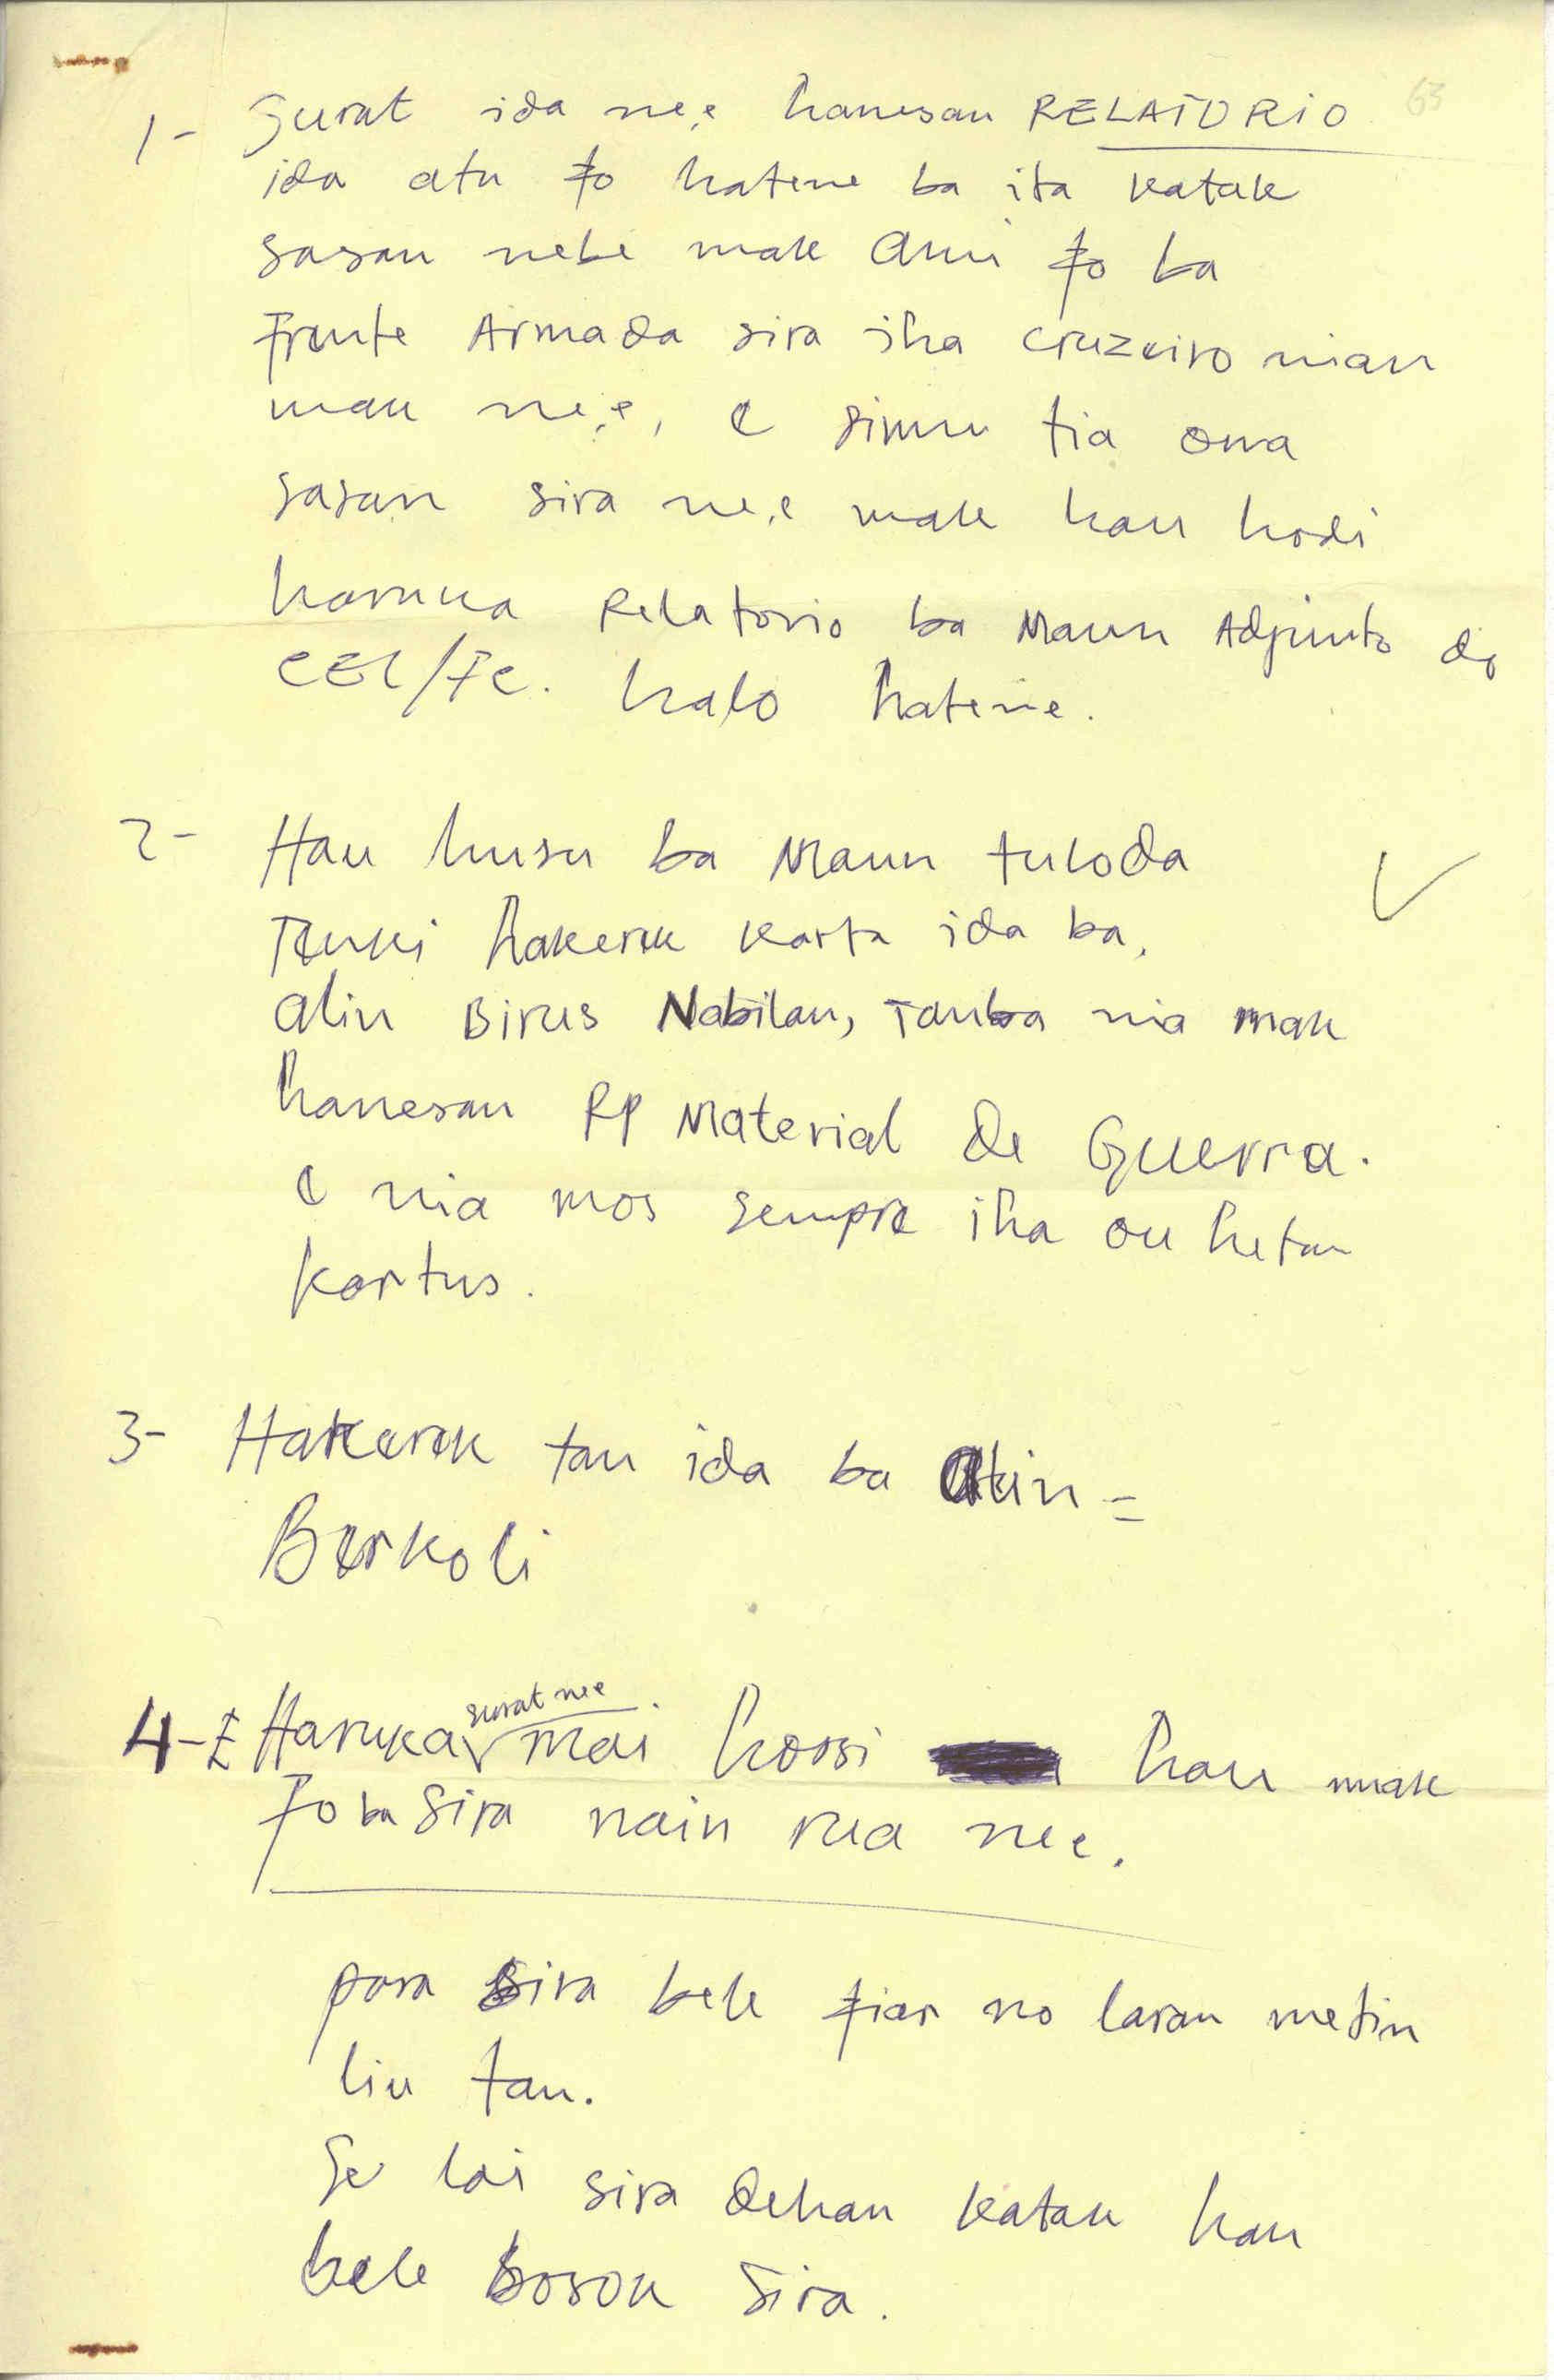 63
1- Surat ida ne,e hanesan RELATORIO
ida atu fo hatene ba ita katak
sasan nebe mak Ami fo ba
Frente Armada sira iha cruzeiro nian
mak ne,e, e simu tia ona
sasan sira ne,e mak hau hodi
haruka Relatorio ba Maun Adjunto do
CEL/FC. halo hatene.
2- Hau husu ba Maun tuloda
Tenki hakerek karta ida ba,
alin Birus Nabilan, Tanba nia mak
hanesan RP Material de Guerra.
e nia mos sempre iha ou hetan
kartus.
3- Hakerek tan ida ba Alin =
Berkoli
surat nee
4- E Haruka mai hossi hau mak
fo ba sira nain rua nee.
para sira bele fiar no laran metin
liu tan.
Se lai sira dehan katak hau
bele bosok sira.